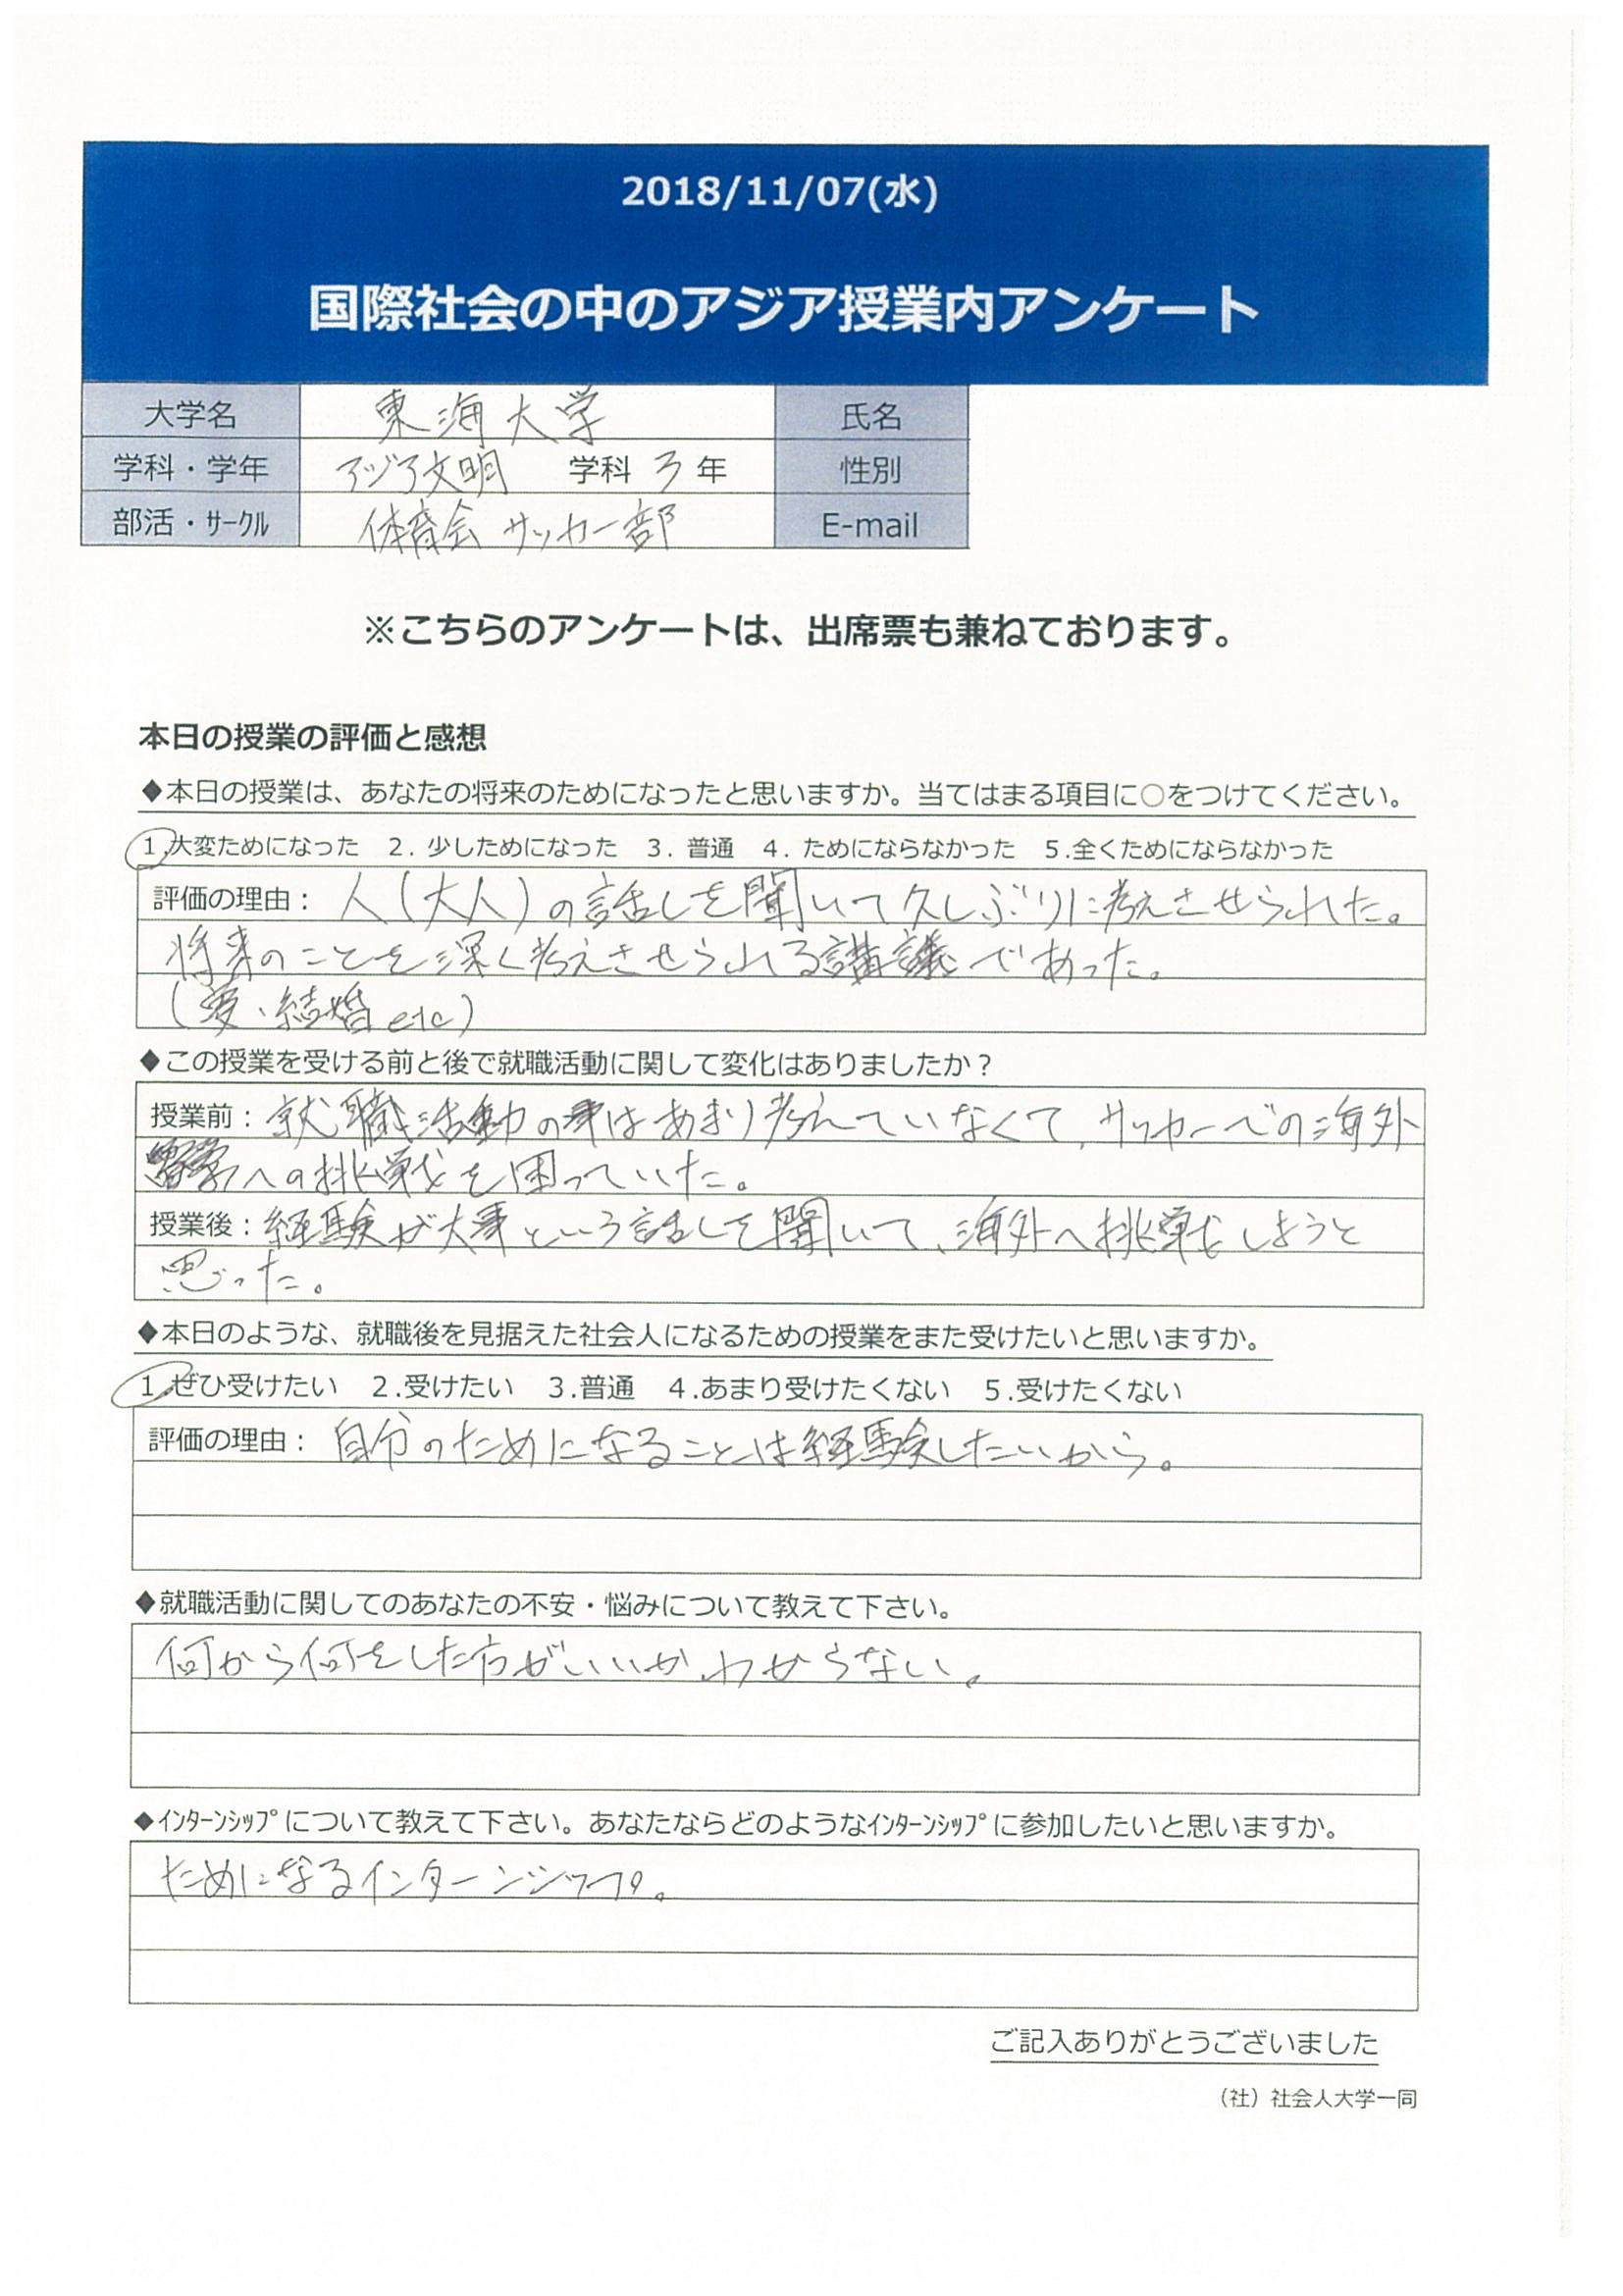 2018/11/07(水)
国際社会の中のアジア授業内アンケート
大学名 東海大学 氏名
学科・学年 アジア文明 学科 3 年 性別
部活・ｻｰｸﾙ 体育会 サッカー部 E-mail
※こちらのアンケートは、出席票も兼ねております。
本日の授業の評価と感想
◆本日の授業は、あなたの将来のためになったと思いますか。当てはまる項目に○をつけてください。
1.大変ためになった 2. 少しためになった 3. 普通 4. ためにならなかった 5.全くためにならなかった
評価の理由： 人（大人）の話しを聞いて久しぶりに考えさせられた。
将来のことを深く考えさせられる講議であった。
（夢、結婚 etc）
◆この授業を受ける前と後で就職活動に関して変化はありましたか？
授業前：就職活動の事はあまり考えていなくて、サッカーでの海外
への挑戦を困っていた。
授業後：経験が大事という話しを聞いて、海外へ挑戦しようと
思った。
◆本日のような、就職後を見据えた社会人になるための授業をまた受けたいと思いますか。
1.ぜひ受けたい 2.受けたい 3.普通 4.あまり受けたくない 5.受けたくない
評価の理由： 自分のためになることは経験したいから。
◆就職活動に関してのあなたの不安・悩みについて教えて下さい。
何から何をした方がいいかわからない。
◆ｲﾝﾀｰﾝｼｯﾌﾟについて教えて下さい。あなたならどのようなｲﾝﾀｰﾝｼｯﾌﾟに参加したいと思いますか。
ためになるインターンシップ。
ご記入ありがとうございました
（社）社会人大学一同